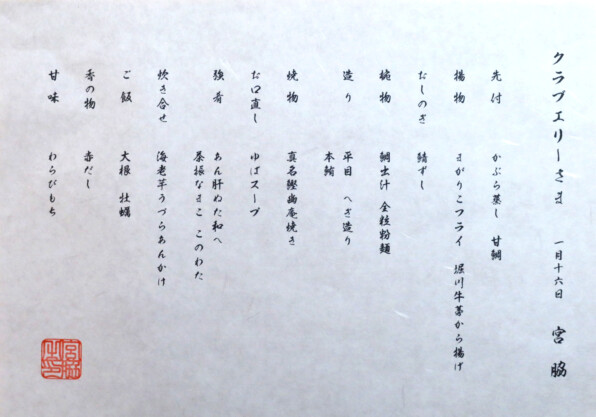 クラブエリーさま 一月十六日 宮脇
先付 かぶら蒸し 甘鯛
揚物 まがりこフライ 堀川牛蒡から揚げ
おしのぎ 鯖ずし
椀物 鯛出汁 全粒粉麺
造り 平目 へぎ造り
本鮪
焼物 真名鰹幽庵焼き
お口直し ゆばスープ
強肴 あん肝ぬた和へ
茶振なまこ このわた
炊き合せ 海老芋うづらあんかけ
ご飯 大根 牡蠣
香の物 赤だし
甘味 わらびもち